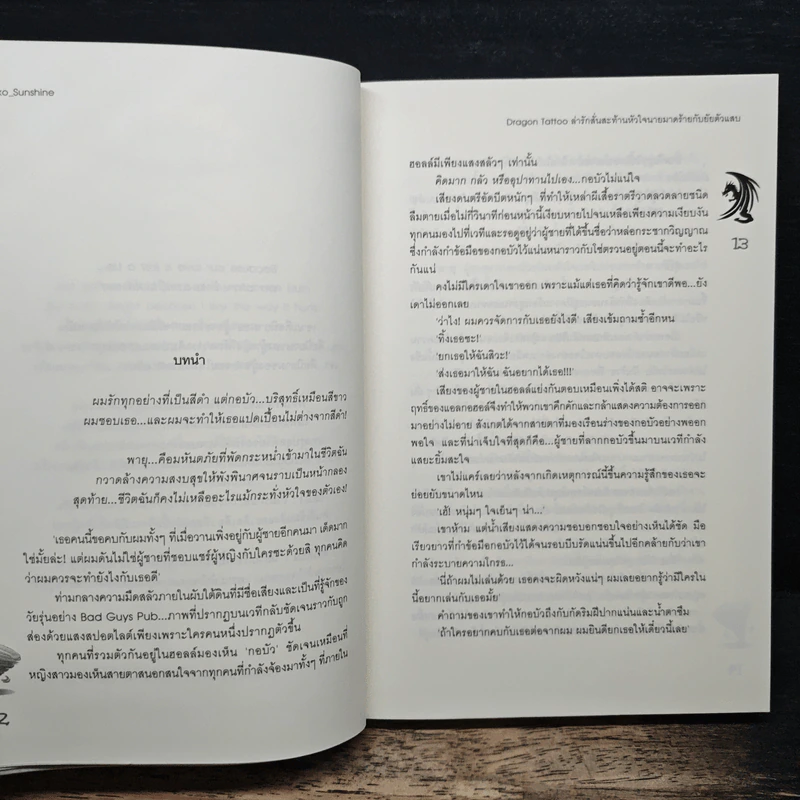 ko_Sunshine
บทนำ
ผมรักทุกอย่างที่เป็นสีดำ แต่กอบัว...บริสุทธิ์เหมือนสีขาว
ผมชอบเธอ...และผมจะทำให้เธอแปดเปื้อนไม่ต่างจากสีดำ!
พายุ...คือมหันตภัยที่พัดกระหน่ำเข้ามาในชีวิตฉัน
กวาดล้างความสงบสุขให้พังพินาศจนราบเป็นหน้ากลอง
สุดท้าย...ชีวิตฉันก็คงไม่เหลืออะไรแม้กระทั่งหัวใจของตัวเอง!
'เธอคนนี้ขอคบกับผมทั้งๆ ที่เมื่อวานเพิ่งอยู่กับผู้ชายอีกคนมา เด็ดมาก
ใช่มั้ยล่ะ! แต่ผมดันไม่ใช่ผู้ชายที่ชอบแชร์ผู้หญิงกับใครซะด้วยสิ ทุกคนคิด
ว่าผมควรจะทำยังไงกับเธอดี'
ท่ามกลางความมืดสลัวภายในผับใต้ดินที่มีชื่อเสียงและเป็นที่รู้จักของ
วัยรุ่นอย่าง Bad Guys Pub...ภาพที่ปรากฏบนเวทีกลับชัดเจนราวกับถูก
ส่องด้วยแสงสปอตไลต์เพียงเพราะใครคนหนึ่งปรากฏตัวขึ้น
ทุกคนที่รวมตัวกันอยู่ในฮอลล์มองเห็น 'กอบัว' ชัดเจนเหมือนที่
หญิงสาวมองเห็นสายตาสนอกสนใจจากทุกคนที่กำลังจ้องมาทั้งๆ ที่ภายใน
2
Dragon Tattoo ล่ารักสั่นสะท้านหัวใจนายมาดร้ายกับยัยตัวแสบ
13
ฮอลล์มีเพียงแสงสลัวๆ เท่านั้น
คิดมาก กลัว หรืออุปาทานไปเอง...กอบัวไม่แน่ใจ
เสียงดนตรีอัดบีตหนักๆ ที่ทำให้เหล่าผีเสื้อราตรีวาดลวดลายชนิด
ลืมตายเมื่อไม่กี่วินาทีก่อนหน้านี้เงียบหายไปจนเหลือเพียงความเงียบงัน
ทุกคนมองไปที่เวทีและรอดูอยู่ว่าผู้ชายที่ได้ขึ้นชื่อว่าหล่อกระชากวิญญาณ
ซึ่งกำลังกำข้อมือของกอบัวไว้แน่นหนาราวกับโซ่ตรวนอยู่ตอนนี้จะทำอะไร
กันแน่
คงไม่มีใครเดาใจเขาออก เพราะแม้แต่เธอที่คิดว่ารู้จักเขาดีพอ...ยัง
เดาไม่ออกเลย
'ว่าไง! ผมควรจัดการกับเธอยังไงดี' เสียงเข้มถามซ้ำอีกหน
'ทิ้งเธอซะ!'
'ยกเธอให้ฉันสิวะ!'
'ส่งเธอมาให้ฉัน ฉันอยากได้เธอ!!!'
เสียงของผู้ชายในฮอลล์แย่งกันตอบเหมือนเพิ่งได้สติ อาจจะเพราะ
ฤทธิ์ของแอลกอฮอล์จึงทำให้พวกเขาคึกคักและกล้าแสดงความต้องการออก
มาอย่างไม่อาย สังเกตได้จากสายตาที่มองเรือนร่างของกอบัวอย่างพออก
พอใจ และที่น่าเจ็บใจที่สุดก็คือ...ผู้ชายที่ลากกอบัวขึ้นมาบนเวทีกำลัง
แสยะยิ้มสะใจ
เขาไม่แคร์เลยว่าหลังจากเกิดเหตุการณ์นี้ขึ้นความรู้สึกของเธอจะ
ย่อยยับขนาดไหน
'เฮ้! หนุ่มๆ ใจเย็นๆ น่า...'
เขาห้าม แต่น้ำเสียงแสดงความชอบอกชอบใจอย่างเห็นได้ชัด มือ
เรียวยาวที่กำข้อมือกอบัวไว้ได้จนรอบบีบรัดแน่นขึ้นไปอีกคล้ายกับว่าเขา
กำลังระบายความโกรธ...
'นี่ถ้าผมไม่เล่นด้วย เธอคงจะผิดหวังแน่ๆ ผมเลยอยากรู้ว่ามีใครใน
นี้อยากเล่นกับเธอมั้ย'
คำถามของเขาทำให้กอบัวถึงกับกัดริมฝีปากแน่นและน้ำตาซึม
'ถ้าใครอยากคบกับเธอต่อจากผม ผมยินดียกเธอให้เดี๋ยวนี้เลย'